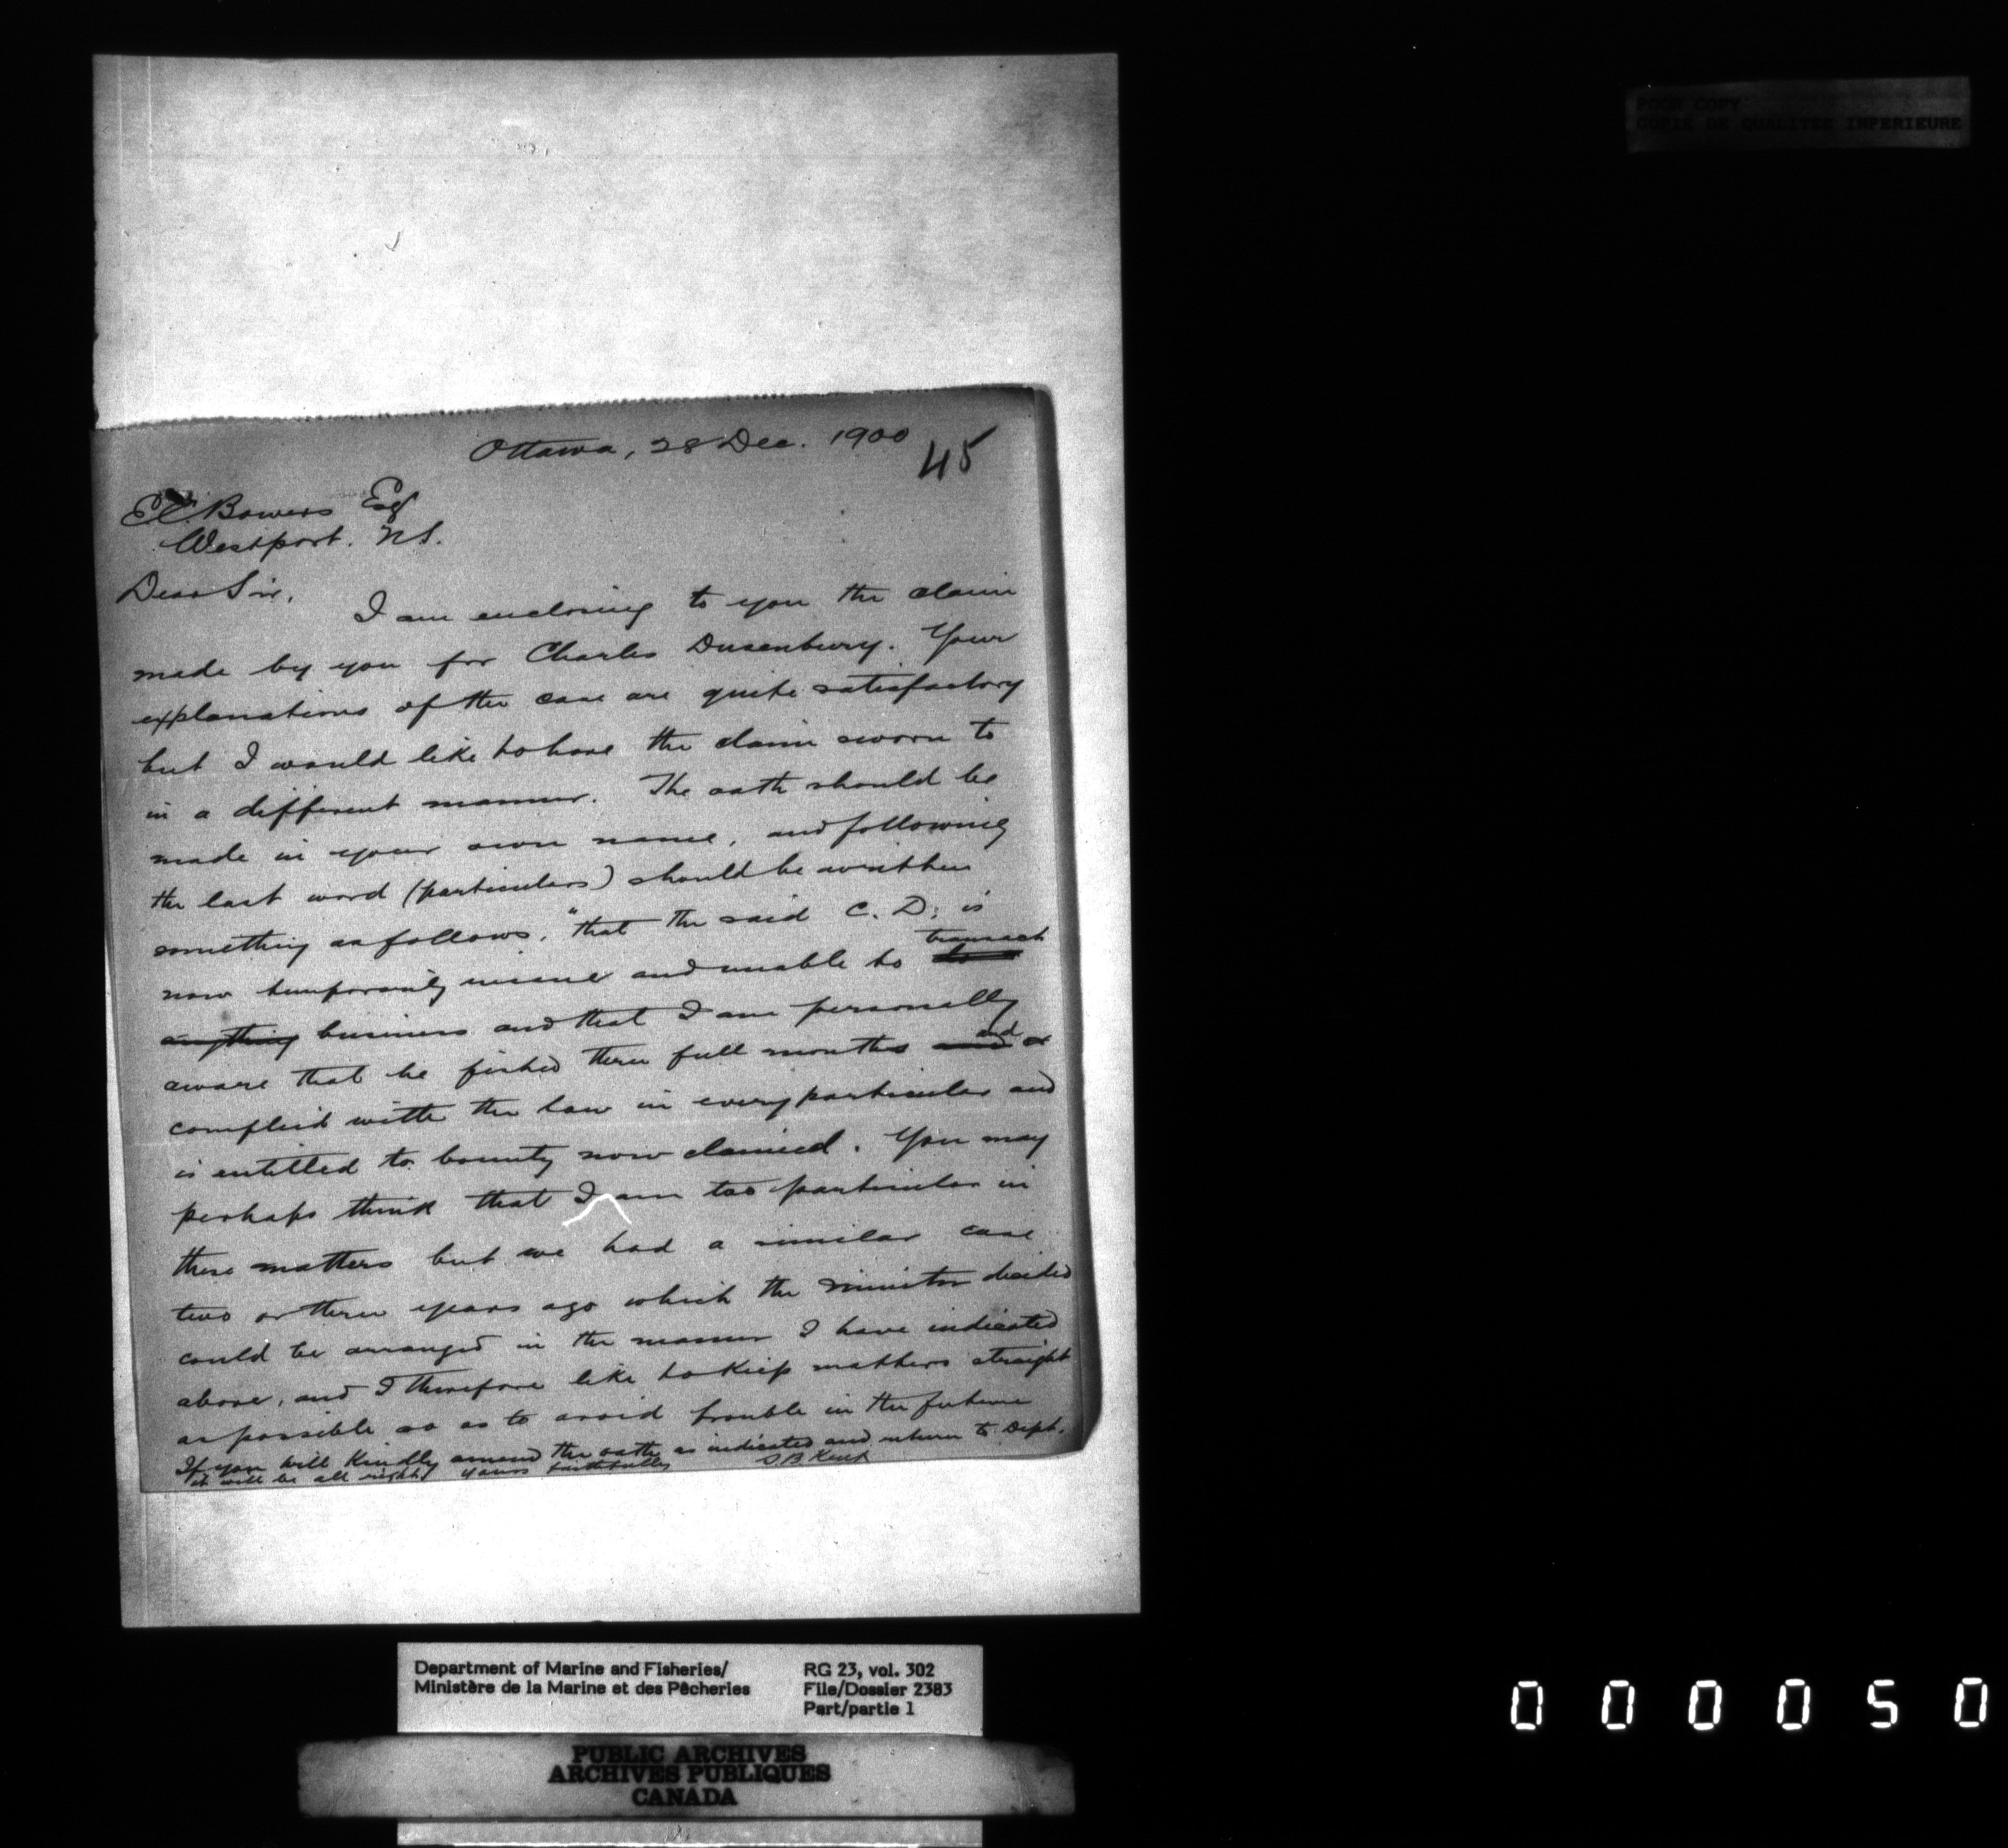 POOR COPY
COPIE DE QUALITEE INFERIEURE
Ottawa, 28 Dec. 1900
45
E.C. Bowers Esq
Westport. N.S.
Dear Sir,
I am enclosing to you the claim
made by you for Charles Dusenbury. Your
explanations of the case are quite satisfactory
but I would like to have the claim sworn to
in a different manner. The oath should be
made in your own name, and following
the last word (particulars) should be written
something as follows, "that the said C. D. is
now temporarily insane and unable to transact
anything business and that I am personally
aware that he fished three full months and
complied with the law in every particular and
is entitled to bounty now claimed. You may
perhaps think that I am too particular in
these matters but we had a similar case
two or three years ago which the Minister decided
could be arranged in the manner I have indicated
above, and I therefore like to keep matters straight
as possible so as to avoid trouble in the future
If you will kindly amend the oath as indicated and return to Dept.
it will be all right. Yours faithfully S B Kent
Department of Marine and Fisheries/
Ministère de la Marine et des Pêcheries
RG 23, vol. 302
File/Dossier 2383
Part/partie 1
PUBLIC ARCHIVES
ARCHIVES PUBLIQUES
CANADA
000050